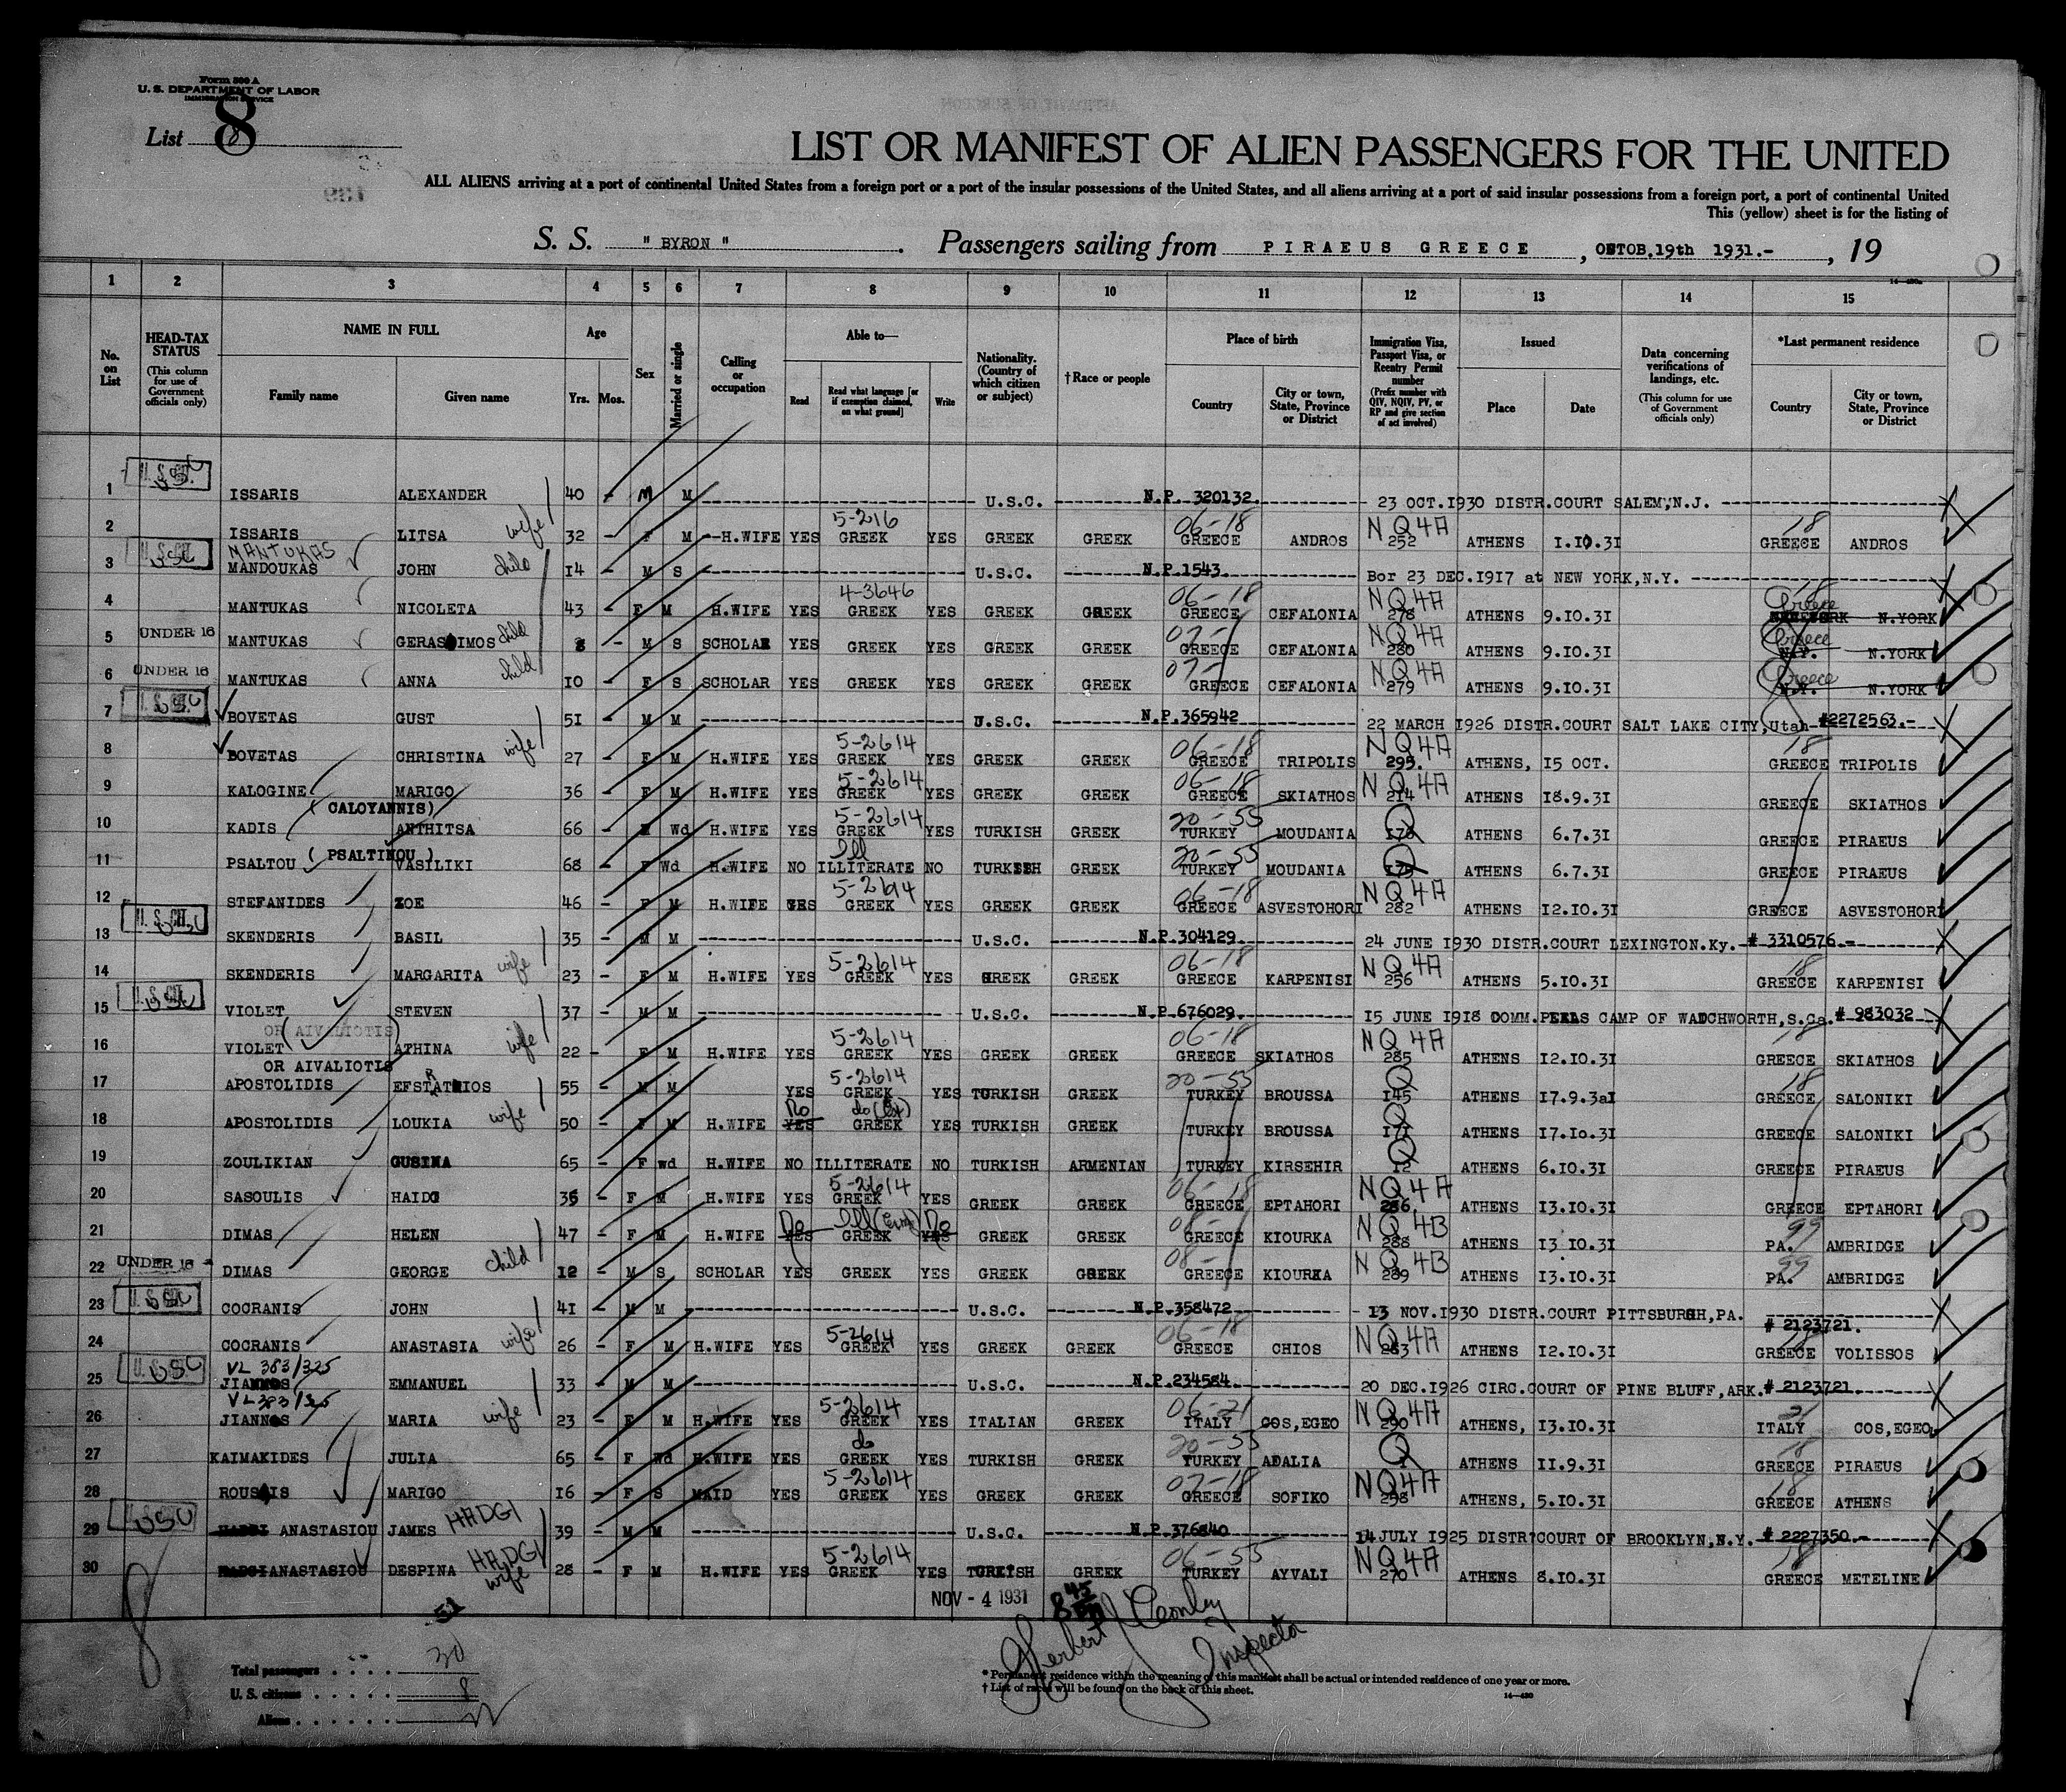 Form 500 A
U. S. DEPARTMENT OF LABOR
IMMIGRATION SERVICE
List 8
LIST OR MANIFEST OF ALIEN PASSENGERS FOR THE UNITED
ALL ALIENS arriving at a port of continental United States from a foreign port or a port of the insular possessions of the United States, and all aliens arriving at a port of said insular possessions from a foreign port, a port of continental United
This (yellow) sheet is for the listing of
S. S. " BYRON " . Passengers sailing from PIRAEUS GREECE , OSTOB.19th 1931.- , 19
1 2 3 4 5 6 7 8 9 10 11 12 13 14 15
No. on List
HEAD-TAX STATUS (This column for use of Government officials only)
NAME IN FULL Family name Given name
Age Yrs. Mos.
Sex
Married or single
Calling or occupation
Able to— Read Read what language [or if exemption claimed, on what ground] Write
Nationality. (Country of which citizen or subject)
†Race or people
Place of birth Country City or town, State, Province or District
Immigration Visa, Passport Visa, or Reentry Permit number (Prefix number with QIV, NQIV, PV, or RP and give section of act involved)
Issued Place Date
Data concerning verifications of landings, etc. (This column for use of Government officials only)
*Last permanent residence Country City or town, State, Province or District
1 U.S.C. ISSARIS ALEXANDER 40 - M M U.S.C. N.P. 320132. 23 OCT.1930 DISTR.COURT SALEM,N.J.
2 ISSARIS LITSA wife 32 - F M H.WIFE YES 5-216 GREEK YES GREEK GREEK 06-18 GREECE ANDROS NQ4A 252 ATHENS 1.10.31 18 GREECE ANDROS
3 USC MANTUKAS MANDOUKAS JOHN child 14 - M S U.S.C. N.P.1543. Bor 23 DEC.1917 at NEW YORK,N.Y.
4 MANTUKAS NICOLETA 43 - F M H.WIFE YES 4-3646 GREEK YES GREEK GREEK 06-18 GREECE CEFALONIA NQ4A 278 ATHENS 9.10.31 18 Greece N.YORK
5 UNDER 16 MANTUKAS GERASIMOS child 8 - M S SCHOLAR YES GREEK YES GREEK GREEK 07- GREECE CEFALONIA NQ4A 280 ATHENS 9.10.31 Greece N.Y. N.YORK
6 UNDER 16 MANTUKAS ANNA child 10 - F S SCHOLAR YES GREEK YES GREEK GREEK 07- GREECE CEFALONIA NQ4A 279 ATHENS 9.10.31 Greece N.Y. N.YORK
7 USC BOVETAS GUST 51 - M M U.S.C. N.P.365942 22 MARCH 1926 DISTR.COURT SALT LAKE CITY,Utah #2272563.-
8 BOVETAS CHRISTINA wife 27 - F M H.WIFE YES 5-2614 GREEK YES GREEK GREEK 06-18 GREECE TRIPOLIS NQ4A 295. ATHENS, 15 OCT. 18 GREECE TRIPOLIS
9 KALOGINE MARIGO 36 - F M H.WIFE YES 5-2614 GREEK YES GREEK GREEK 06-18 GREECE SKIATHOS NQ4A 214 ATHENS 18.9.31 GREECE SKIATHOS
( CALOYANNIS)
10 KADIS ANTHITSA 66 - Wd H.WIFE YES 5-2614 GREEK YES TURKISH GREEK 20-55 TURKEY MOUDANIA Q 176 ATHENS 6.7.31 GREECE PIRAEUS
( PSALTINOU )
11 PSALTOU VASILIKI 68 - F Wd H.WIFE NO Ill ILLITERATE NO TURKISH GREEK 20-55 TURKEY MOUDANIA Q 175 ATHENS 6.7.31 GREECE PIRAEUS
12 STEFANIDES ZOE 46 - F M H.WIFE YES 5-2614 GREEK YES GREEK GREEK 06-18 GREECE ASVESTOHORI NQ4A 282 ATHENS 12.10.31 GREECE ASVESTOHORI
13 U.S.CIT. USC SKENDERIS BASIL 35 - M M U.S.C. N.P.304129. 24 JUNE 1930 DISTR.COURT LEXINGTON.Ky. # 3310576 -
14 SKENDERIS MARGARITA wife 23 - F M H.WIFE YES 5-2614 GREEK YES GREEK GREEK 06-18 GREECE KARPENISI NQ4A 256 ATHENS 5.10.31 18 GREECE KARPENISI
15 U.S.CIT. USC VIOLET STEVEN 37 - M M U.S.C. N.P.676029. 15 JUNE 1918 COMM.PEALS CAMP OF WADCHWORTH,S.Ca. # 983032
OR (AIVALIOTIS)
16 VIOLET ATHINA wife 22 - F M H.WIFE YES 5-2614 GREEK YES GREEK GREEK 06-18 GREECE SKIATHOS NQ4A 285 ATHENS 12.10.31 18 GREECE SKIATHOS
OR AIVALIOTIS
17 APOSTOLIDIS EFSTATRIOS 55 - M M YES 5-2614 GREEK YES TURKISH GREEK 20-55 TURKEY BROUSSA Q 145 ATHENS 17.9.3a1 18 GREECE SALONIKI
18 APOSTOLIDIS LOUKIA wife 50 - F M H.WIFE No YES do GREEK YES TURKISH GREEK TURKEY BROUSSA Q 171 ATHENS 17.10.31 GREECE SALONIKI
19 ZOULIKIAN GUSINA 65 - F wd H.WIFE NO ILLITERATE NO TURKISH ARMENIAN TURKEY KIRSEHIR Q 12 ATHENS 6.10.31 GREECE PIRAEUS
20 SASOULIS HAIDO 36 - F M H.WIFE YES 5-2614 GREEK YES GREEK GREEK 06-18 GREECE EPTAHORI NQ4A 286. ATHENS 13.10.31 GREECE EPTAHORI
21 DIMAS HELEN 47 - F M H.WIFE No YES Ill GREEK No YES GREEK GREEK 08- GREECE KIOURKA NQ4B 288 ATHENS 13.10.31 99 PA. AMBRIDGE
22 UNDER 16 DIMAS GEORGE child 12 - M S SCHOLAR YES GREEK YES GREEK GREEK 08- GREECE KIOURKA NQ4B 289 ATHENS 13.10.31 99 PA. AMBRIDGE
23 USC COCRANIS JOHN 41 - M M U.S.C. N.P.358472 13 NOV.1930 DISTR.COURT PITTSBURGH,PA.
# 2123721.
24 COCRANIS ANASTASIA wife 26 - F M H.WIFE YES 5-2614 GREEK YES GREEK GREEK 06-18 GREECE CHIOS NQ4A 283 ATHENS 12.10.31 18 GREECE VOLISSOS
VL 383/325
25 USC JIANNOS EMMANUEL 33 - M M U.S.C. N.P.234584. 20 DEC.1926 CIRC.COURT OF PINE BLUFF,ARK. # 2123721.
VL 383/325
26 JIANNOS MARIA wife 23 - F M H.WIFE YES 5-2614 GREEK YES ITALIAN GREEK 06-21 ITALY COS,EGEO NQ4A 290 ATHENS, 13.10.31 21 ITALY COS,EGEO
27 KAIMAKIDES JULIA 65 - F Wd H.WIFE YES do GREEK YES TURKISH GREEK 20-55 TURKEY ADALIA Q ATHENS 11.9.31 18 GREECE PIRAEUS
28 MARIGO 16 - F S MAID YES 5-2614 GREEK YES GREEK GREEK 07-18 GREECE SOFIKO NQ4A 298 ATHENS, 5.10.31 18 GREECE ATHENS
29 USC ANASTASIOU JAMES HADGI 39 - M M U.S.C. N.P.376840 14 JULY 1925 DISTR?COURT OF BROOKLYN,N.Y. # 2227350.-
30 ANASTASIOU DESPINA HADGI wife 28 - F M H.WIFE YES 5-2614 GREEK YES TURKISH GREEK 06-55 TURKEY AYVALI NQ4A 270 ATHENS 8.10.31 18 GREECE METELINE
NOV - 4 1931 8 45
Herbert J Inspector
Total passengers . . . . 30
U. S. citizens . . . . . 8
Aliens . . . . . . 22
* Permanent residence within the meaning of this manifest shall be actual or intended residence of one year or more.
† List of races will be found on the back of this sheet.
14—420